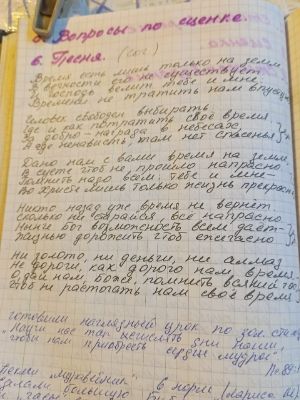 5. Вопросы по сценке.
6. Песня. (сог.)
Время есть лишь только на земле
В вечности его не существует.
И Господь велит тебе и мне:
Времени не тратить нам впустую
Человек свободен выбирать,
Где и как потратить своё время,
За добро - награда в небесах,
А где ненависть, там нет спасенья
Дано нам с вами время на земле,
В суете чтоб не прошло напрасно
Помнить надо всем, тебе и мне -
Во Христе лишь только жизнь прекрасна
Никто назад уже время не вернёт
Сколько ни старайся, всё напрасно
Ныне Бог возможность всем даёт -
дорожить чтоб ежечасно
Ни золото, ни деньги, ни алмаз
Не дороги, как дорого нам время.
О дай нам, Боже, помнить всякий
Чтоб не растратить нам своё время
готовили наглядный урок по зол. стих
"Научи нас так исчислять дни наши,
чтобы нам приобресть сердце мудрое".
Пс. 89:
"муравейник"
6 норм (Лариса
большую